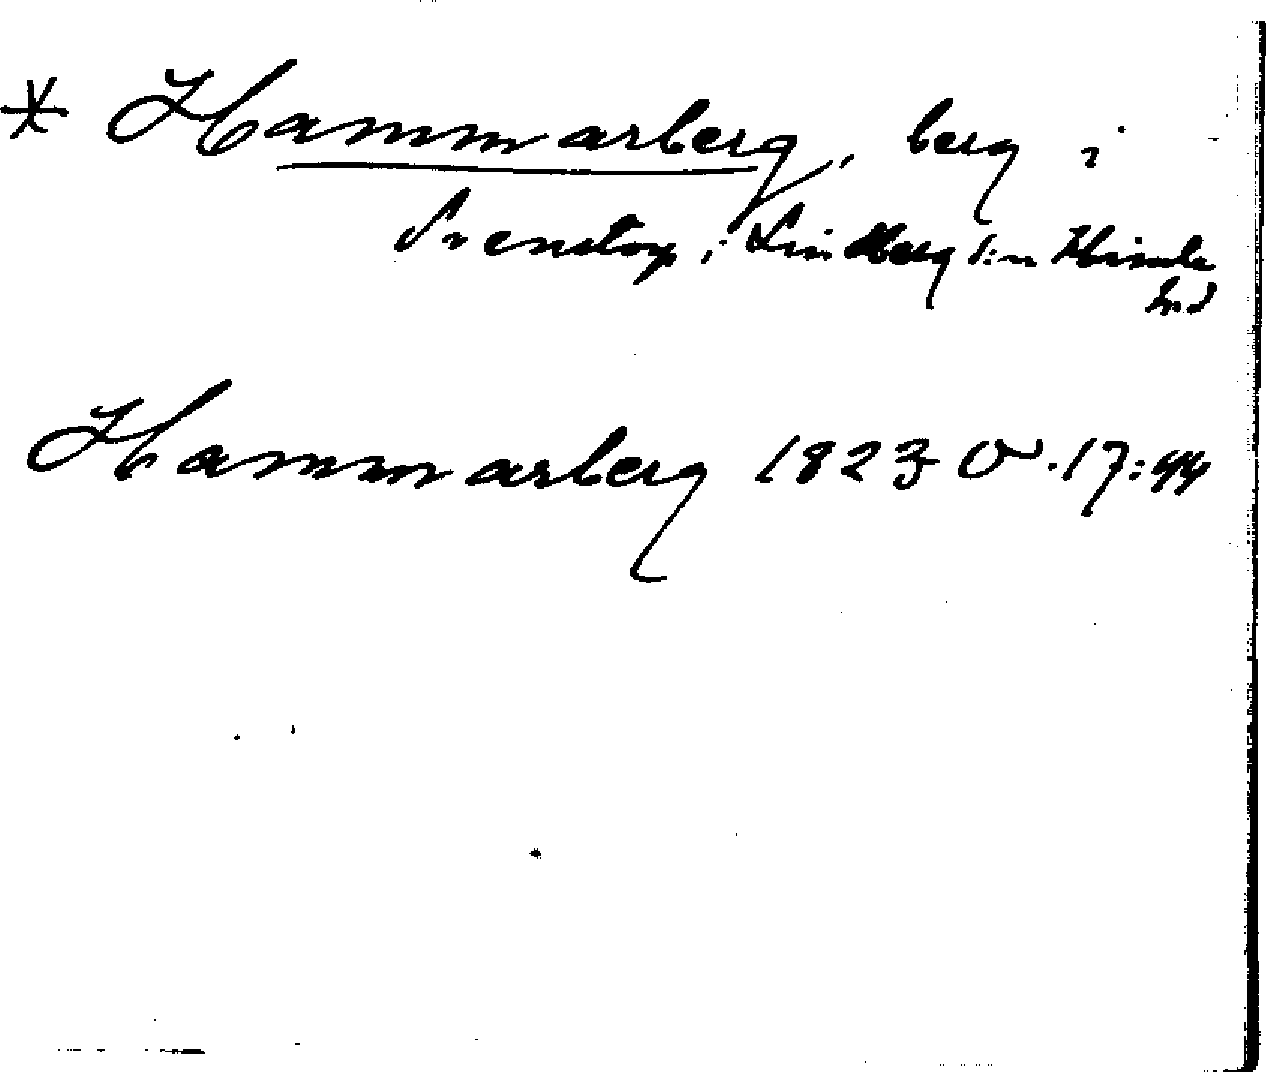 * Hammarberg, berg i
Svenstorp, Lindberg s:n Himle
hd
Hammarberg 1823 Ö. 17:44